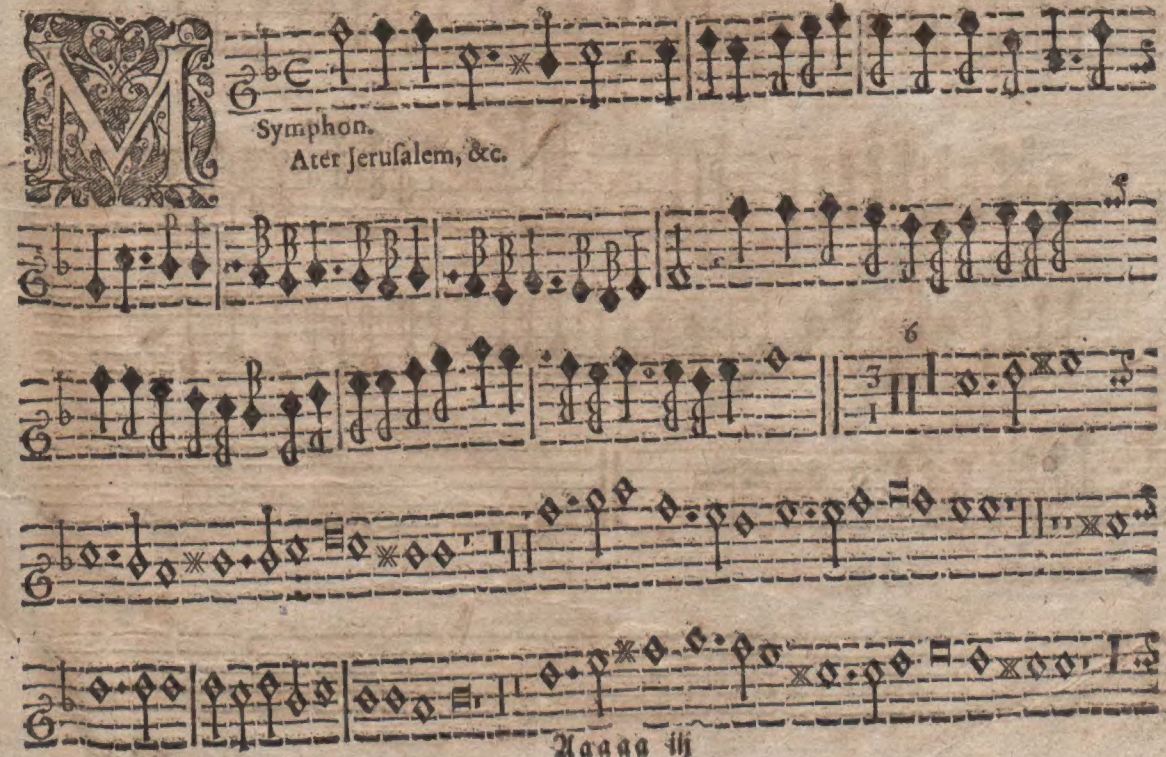 M
Symphon.
Ater Jeruſalem, &c.
6
3
1
Aaaaa iij